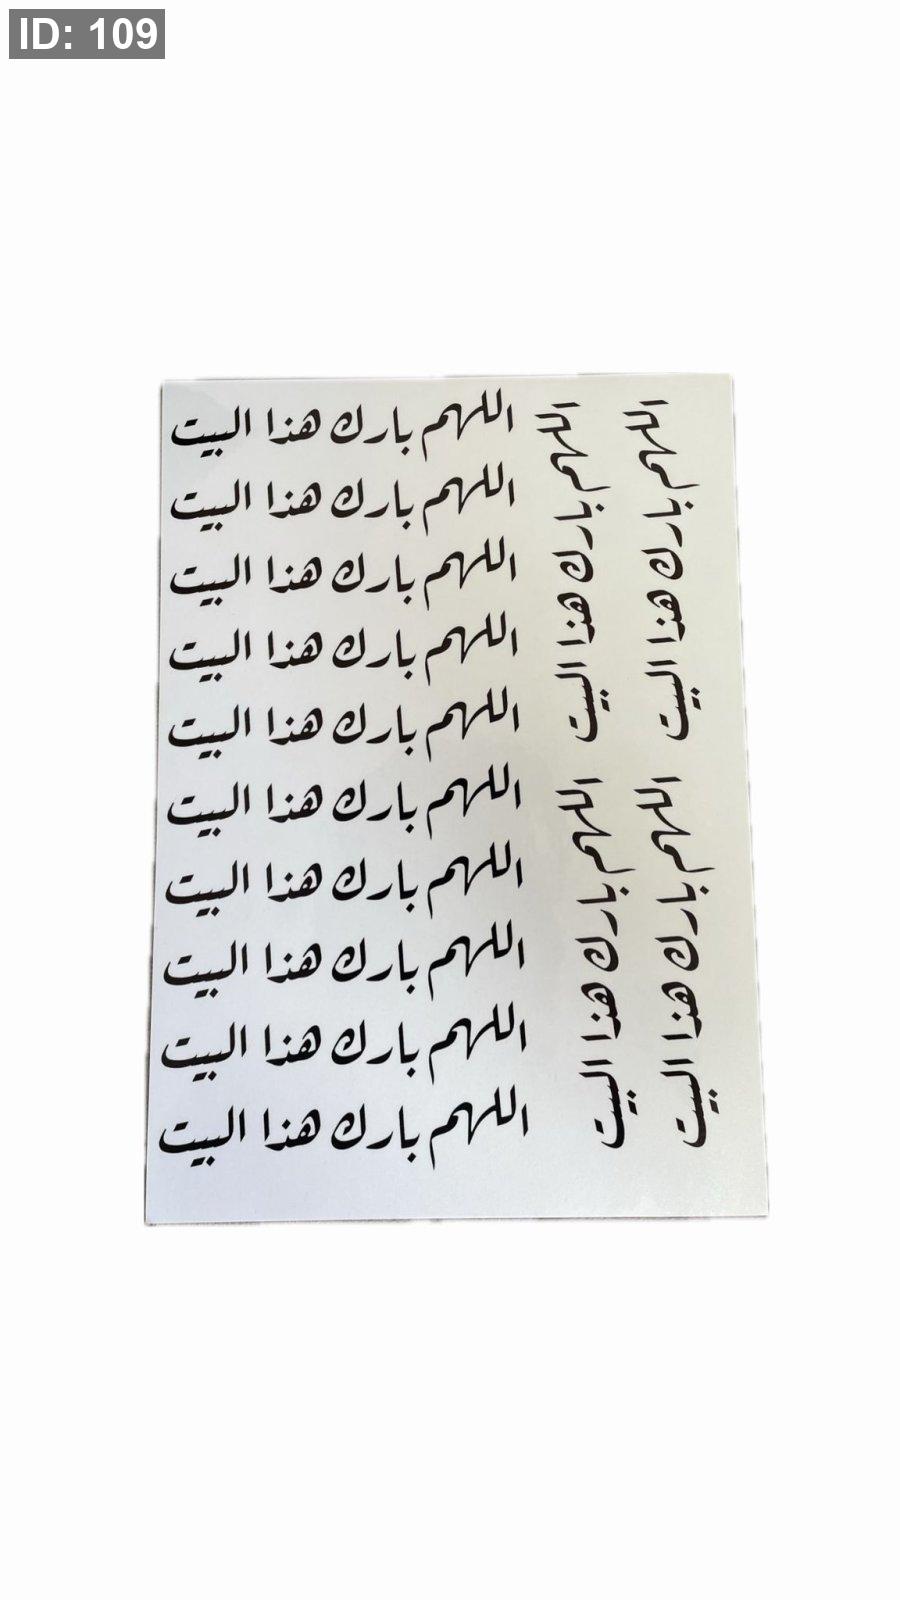 ID: 109
اللهم بارك هذا البيت
اللهم بارك هذا البيت
اللهم بارك هذا البيت
اللهم بارك هذا البيت
اللهم بارك هذا البيت
اللهم بارك هذا البيت
اللهم بارك هذا البيت
اللهم بارك هذا البيت
اللهم بارك هذا البيت
اللهم بارك هذا البيت
اللهم بارك هذا البيت
اللهم بارك هذا البيت
اللهم بارك هذا البيت
اللهم بارك هذا البيت